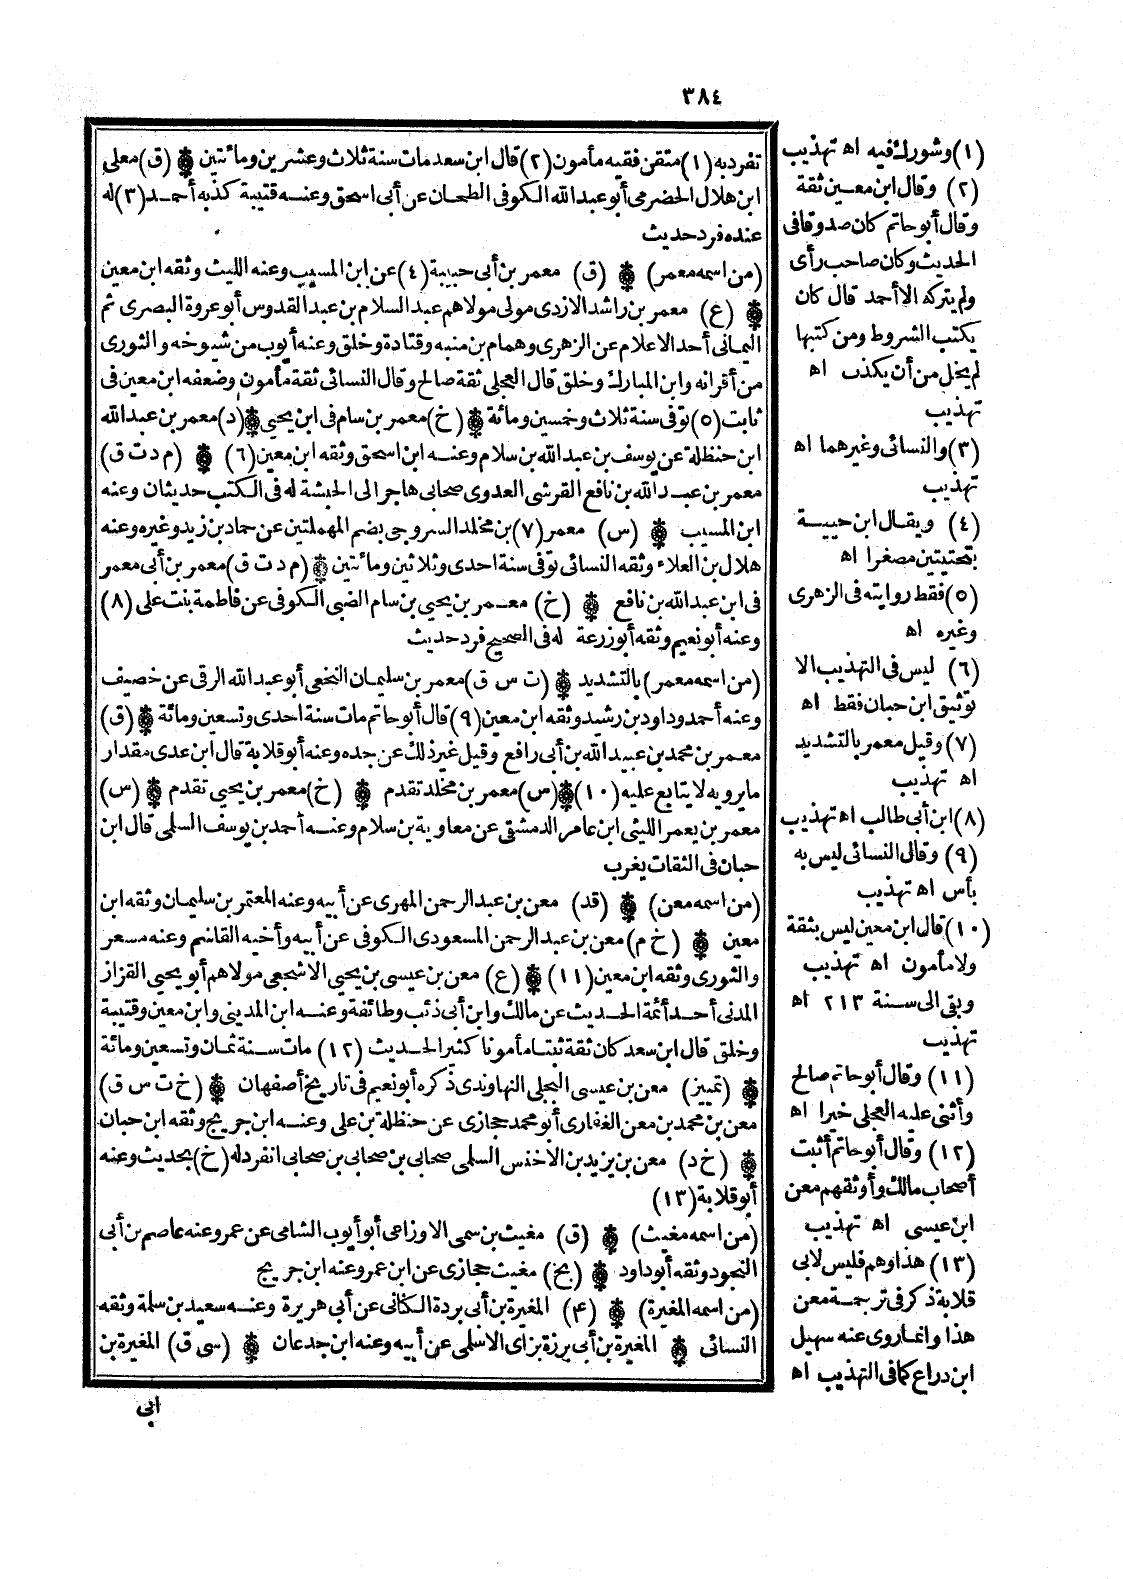 ٣٨٤
تفرد به (١) متقن فقيه مأمون (٢) قال ابن سعد مات سنة ثلاث وعشرين ومائتين ❁ (ق) معلى
ابن هلال الحضرمى أبو عبد الله الكوفى الطحان عن أبى اسحق وعنه قتيبة كذبه أحمد (٣) له
عنده فرد حديث
(من اسمه معمر) ❁ (ق) معمر بن أبى حبيبة (٤) عن ابن المسيب وعنه الليث وثقه ابن معين
❁ (ع) معمر بن راشد الازدى مولى مولاهم عبد السلام بن عبد القدوس أبو عروة البصرى ثم
اليمانى أحد الاعلام عن الزهرى وهمام بن منبه وقتادة وخلق وعنه أيوب من شيوخه والثورى
من أقرانه وابن المبارك وخلق قال العجلى ثقة صالح وقال النسائى ثقة مأمون وضعفه ابن معين فى
ثابت (٥) توفى سنة ثلاث وخمسين ومائة ❁ (خ) معمر بن سام فى ابن يحيى ❁ (د) معمر بن عبد الله
ابن حنظلة عن يوسف بن عبد الله بن سلام وعنه ابن اسحق وثقه ابن معين (٦) ❁ (م د ت ق)
معمر بن عبد الله بن نافع القرشى العدوى صحابى هاجر الى الحبشة له فى الكتب حديثان وعنه
ابن المسيب ❁ (س) معمر (٧) بن مخلد السروجى بضم المهملتين عن حماد بن زيد وغيره وعنه
هلال بن العلاء وثقه النسائى توفى سنة احدى وثلاثين ومائتين ❁ (م د ت ق) معمر بن أبى معمر
فى ابن عبد الله بن نافع ❁ (خ) معمر بن يحيى بن سام الضبى الكوفى عن فاطمة بنت على (٨)
وعنه أبو نعيم وثقه أبو زرعة له فى الصحيح فرد حديث
(من اسمه معمر) بالتشديد ❁ (ت س ق) معمر بن سليمان النخعى أبو عبد الله الرقى عن خصيف
وعنه أحمد وداود بن رشيد وثقه ابن معين (٩) قال أبو حاتم مات سنة احدى وتسعين ومائة ❁ (ق)
معمر بن محمد بن عبيد الله بن أبى رافع وقيل غير ذلك عن جده وعنه أبو قلابة قال ابن عدى مقدار
ما يرويه لا يتابع عليه (١٠) ❁ (س) معمر بن مخلد تقدم ❁ (خ) معمر بن يحيى تقدم ❁ (س)
معمر بن يعمر الليثى ابن عامر الدمشقى عن معاوية بن سلام وعنه أحمد بن يوسف السلمى قال ابن
حبان فى الثقات يغرب
(من اسمه معن) ❁ (قد) معن بن عبد الرحمن المهرى عن أبيه وعنه المعتمر بن سليمان وثقه ابن
معين ❁ (خ م) معن بن عبد الرحمن المسعودى الكوفى عن أبيه وأخيه القاسم وعنه مسعر
والثورى وثقه ابن معين (١١) ❁ (ع) معن بن عيسى بن يحيى الاشجعى مولاهم أبو يحيى القزاز
المدنى أحد أئمة الحديث عن مالك وابن أبى ذئب وطائفة وعنه ابن المدينى وابن معين وقتيبة
وخلق قال ابن سعد كان ثقة ثبتا مأمونا كثير الحديث (١٢) مات سنة ثمان وتسعين ومائة
❁ (تمييز) معن بن عيسى البجلى النهاوندى ذكره أبو نعيم فى تاريخ أصفهان ❁ (خ ت س ق)
معن بن محمد بن معن الغفارى أبو محمد حجازى عن حنظلة بن على وعنه ابن جريج وثقه ابن حبان
❁ (خ د) معن بن يزيد بن الاخنس السلمى صحابى بن صحابى بن صحابى انفرد له (خ) بحديث وعنه
أبو قلابة (١٣)
(من اسمه مغيث) ❁ (ق) مغيث بن سمى الاوزاعى أبو أيوب الشامى عن عمر وعنه عاصم بن أبى
النجود وثقه أبو داود ❁ (بخ) مغيث حجازى عن ابن عمر وعنه ابن جريج
(من اسمه المغيرة) ❁ (٤م) المغيرة بن أبى بردة الكنانى عن أبى هريرة وعنه سعيد بن سلمة وثقه
النسائى ❁ المغيرة بن أبى برزة بزاى الاسلمى عن أبيه وعنه ابن جدعان ❁ (سى ق) المغيرة بن
ابى
(١) وشورك فيه اه تهذيب
(٢) وقال ابن معين ثقة
وقال أبو حاتم كان صدوقا فى
الحديث وكان صاحب رأى
ولم يتركه الا أحمد قال كان
يكتب الشروط ومن كتبها
لم يخل من أن يكذب اه
تهذيب
(٣) والنسائى وغيرهما اه
تهذيب
(٤) ويقال ابن حبيبة
بتحتيتين مصغرا اه
(٥) فقط روايته فى الزهرى
وغيره اه
(٦) ليس فى التهذيب الا
توثيق ابن حبان فقط اه
(٧) وقيل معمر بالتشديد
اه تهذيب
(٨) ابن أبى طالب اه تهذيب
(٩) وقال النسائى ليس به
بأس اه تهذيب
(١٠) قال ابن معين ليس بثقة
ولا مأمون اه تهذيب
وبقى الى سنة ٢١٣ اه
تهذيب
(١١) وقال أبو حاتم صالح
وأثنى عليه العجلى خيرا اه
(١٢) وقال أبو حاتم أثبت
أصحاب مالك وأوثقهم معن
ابن عيسى اه تهذيب
(١٣) هذا وهم فليس لابى
قلابة ذكر فى ترجمة معن
هذا وانما روى عنه سهيل
ابن دراع كما فى التهذيب اه